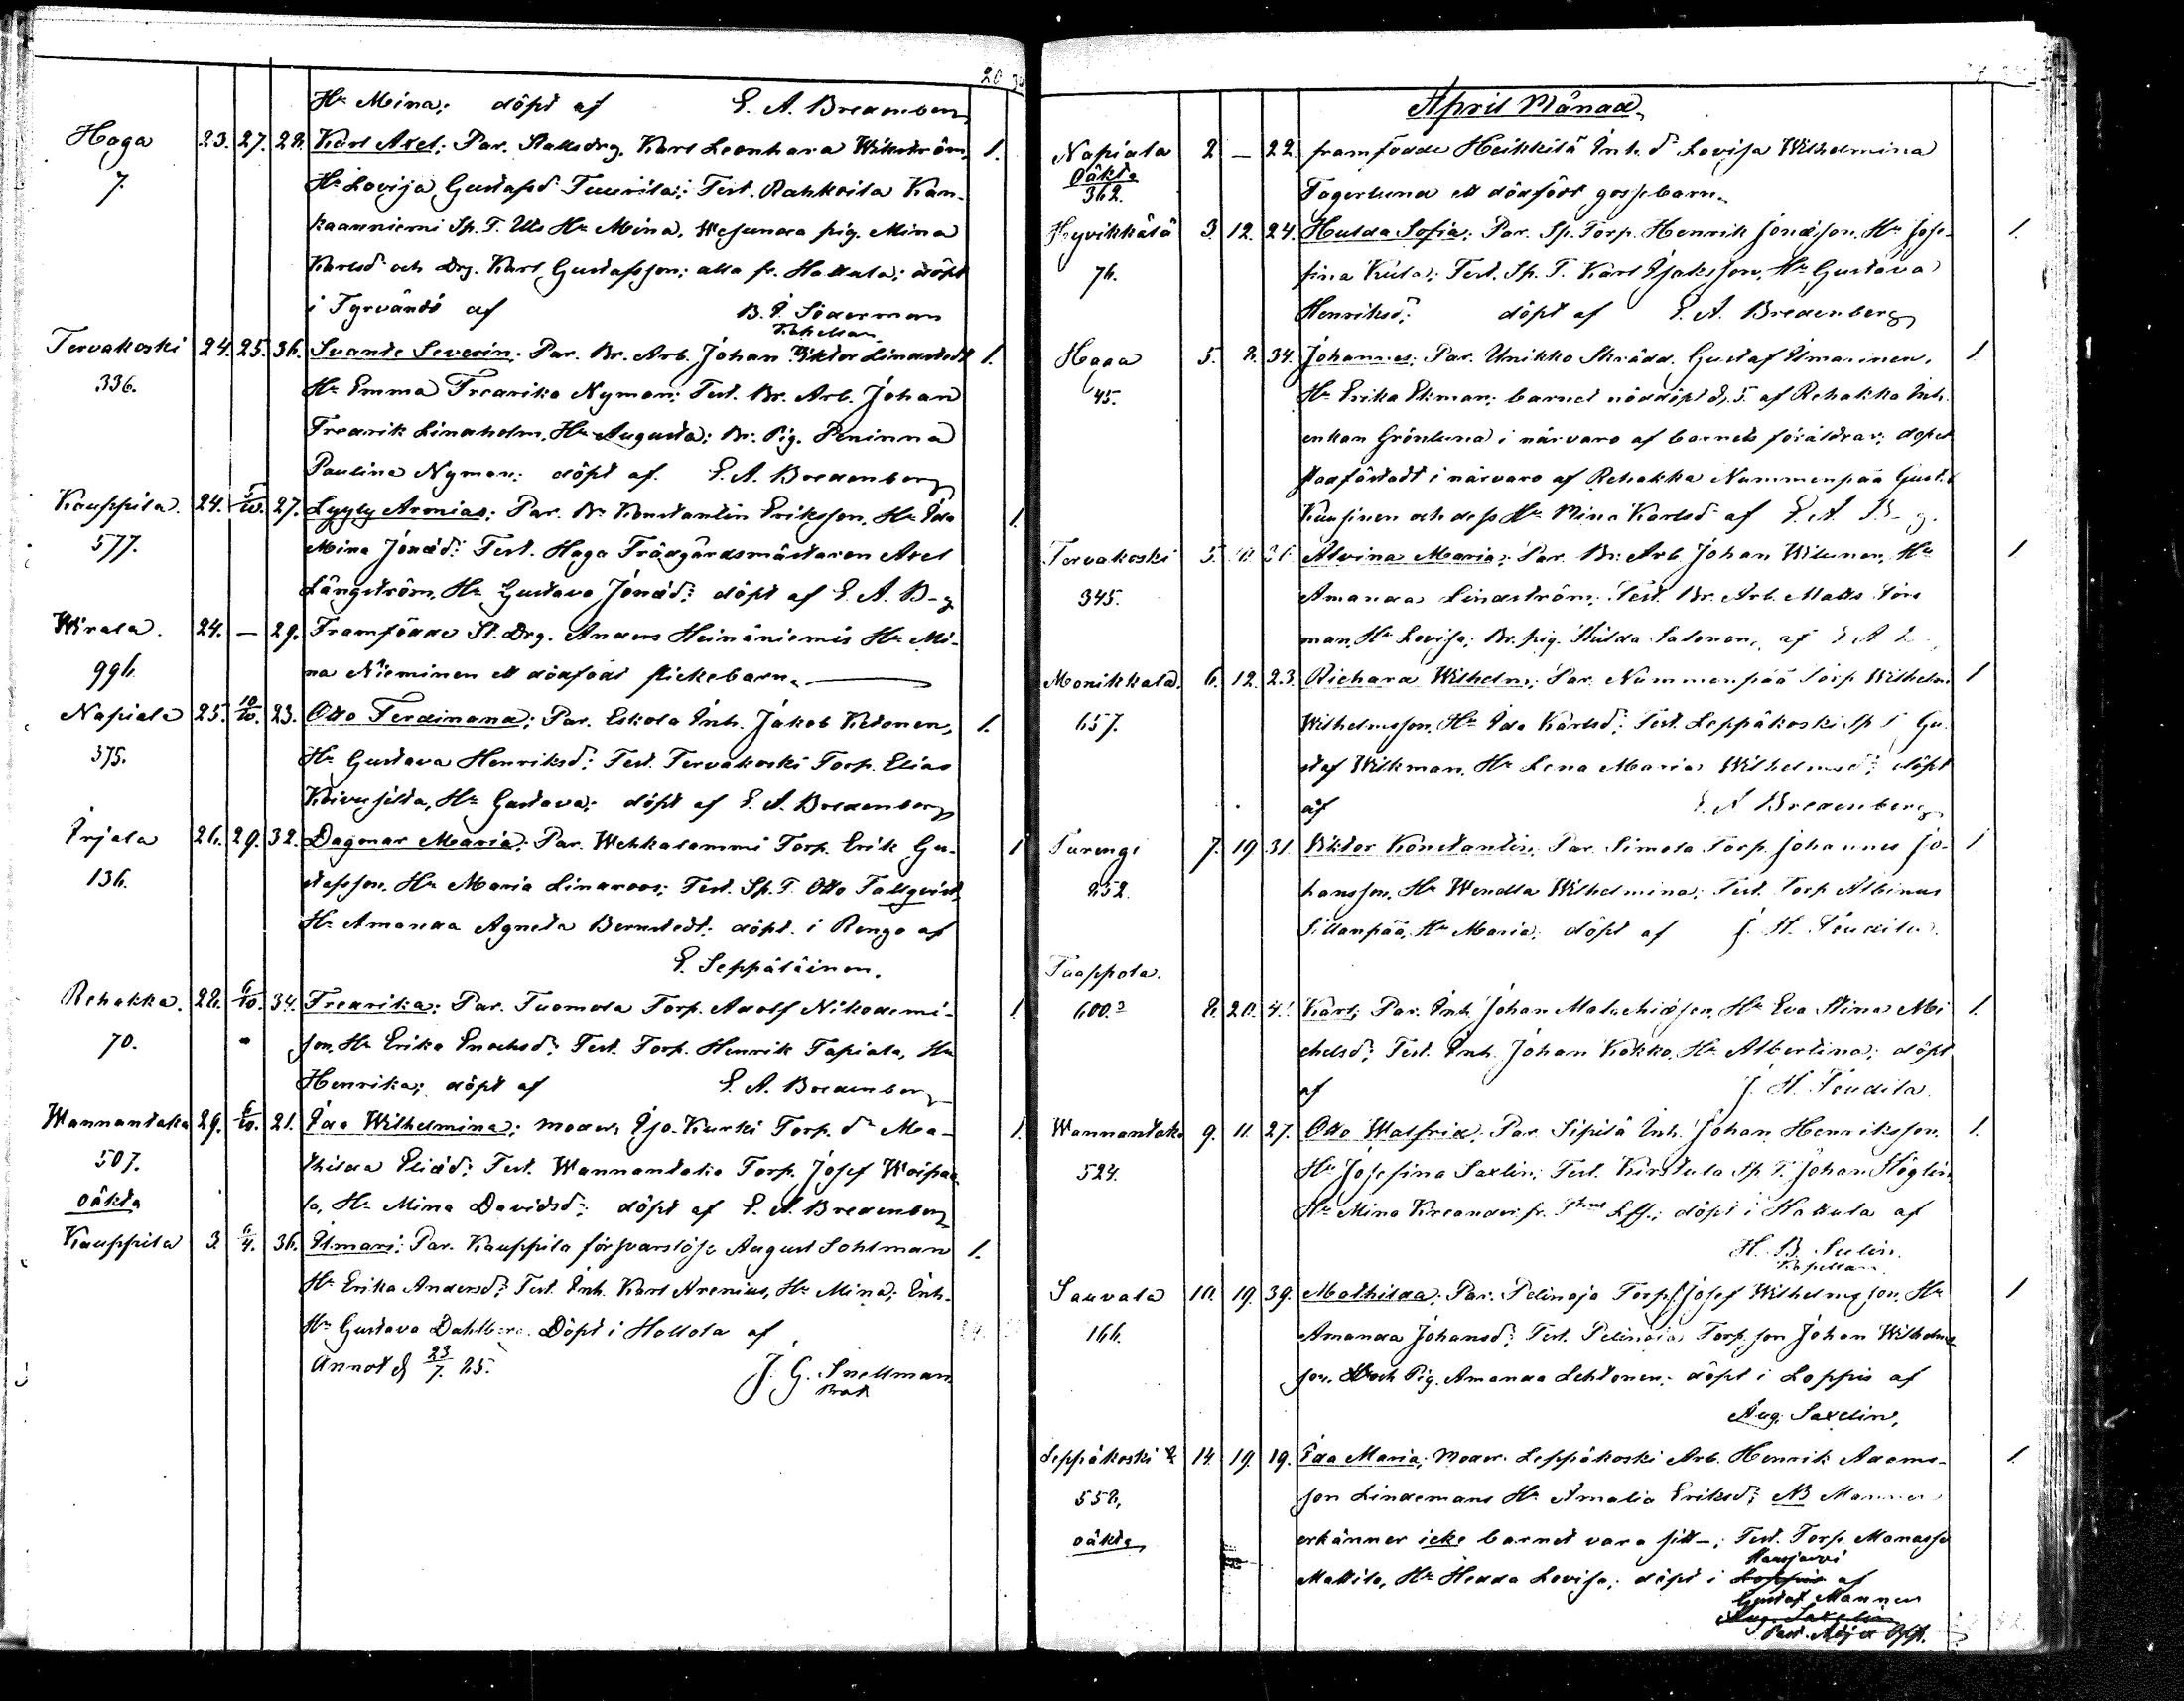 20
Hu Mina; döpt af E. A. Bredenberg
Haga 23. 27. 28. Karl Axel; Par. Stallsdrg. Karl Leonhard Wikström, 1.
7. Hu Lovisa Gustafsd. Tuurila; Test. Rahkoila Kan-
kaanniemi Sp. T. Uls Hu Mina, Wesunda pig. Mina
Karlsd och Drg. Karl Gustafsson; alla fr. Hattula; döpt
i Tyrväntö af B. I. Söderman
Kapellan
Tervakoski 24. 25. 36. Svante Severin. Par. Br. Arb. Johan Viktor Lindstedt 1.
336. Hu Emma Fredrika Nyman; Test. Br. Arb. Johan
Fredrik Lindholm, Hu Augusta; Br. Pig. Peninna
Paulina Nyman; döpt af. E. A. Bredenberg
Kauppila. 24. 5/10. 27. Lyyly Armias; Par. Br Konstantin Eriksson, Hu Ida 1.
577. Mina Jonäd; Test. Haga Trädgårdsmästaren Axel
Långström, Hu Gustava Jonäd; döpt af E. A. B-g
Wirala. 24. — 29. Framfödde St. Drg. Anders Heinäniemis Hu Mi-
996. na Nieminen ett dödfödt flickebarn.
Napiala 25. 10/10. 23. Otto Ferdinand; Par. Eskola Inh. Jakob Ketonen, 1.
375. Hu Gustava Henriksd; Test. Tervakoski Torp. Elias
Koivusilta, Hu Gustava; döpt af E. A. Bredenberg
Irjala 26. 29. 32. Dagmar Maria; Par. Wehkalammi Torp. Erik Gu- 1
136. stafsson, Hu Maria Lindroos; Test. Sp. T. Otto Tallqvist,
Hu Amanda Agneta Bernstedt; döpt i Rengo af
E. Seppäläinen.
Rehakka. 28. 6/10. 34. Fredrika; Par. Tuomola Torp. Adolf Nikodemi- 1.
70. son, Hu Erika Enochsd; Test. Torp. Henrik Tapiala, Hu
Henrika; döpt af E. A. Bredenberg
Wannantaka 29. 6/10. 21. Ida Wilhelmina; moder, Iso-Kurki Torp. dr Ma- 1.
507. thilda Eliäd; Test. Wannantaka Torp. Josef Woipaa-
oäkta la, Hu Mina Davidsd; döpt af E. A. Bredenberg
Kauppila 3. 6/4. 36. Ilmari; Par. Kauppila försvarslöse August Sohlman 1.
Hu Erika Andersd; Test. Inh. Karl Arenius, Hu Mina; Inh.
Hu Gustava Dahlberg. Döpt i Hollola af
Annot d 23/7. 85. J. G. Snellman
Prost
April Månad
Napiala 2 — 22. framfödde Heikkilä Inh. dr Lovisa Wilhelmina
Oäkta
362. Fagerlund ett dödfödt gossebarn.
Hyvikkälä 3. 12. 24. Hulda Sofia; Par. Sp. Torp. Henrik Jonässon, Hu Jose- 1.
76. fina Kula; Test. Sp. T. Karl Isaksson, Hu Gustava
Henriksd; döpt af E. A. Bredenberg
Haga 5. 8. 34. Johannes; Par. Unikko Skrädd. Gustaf Ilmarinen, 1
45. Hu Erika Ekman; barnet nöddöpt d. 5. af Rehakka Inh.
enkan Grönlund i närvaro af barnets föräldrar; dopet
stadfästadt i närvaro af Rehakka Nummenpää Gust.
Kuusinen och dess Hu Mina Karlsd af E. A. B-g.
Tervakoski 5. 10. 31. Alvina Maria; Par. Br. Arb. Johan Wilunen, Hu 1
345. Amanda Lindström; Test. Br. Arb. Matts
man, Hu Lovisa; Br. pig. Hilda Salonen, af E A
Monikkala. 6. 12. 23. Richard Wilhelm; Par. Nummenpää Torp Wilhelm 1
657. Wilhelmsson, Hu Ida Karlsd; Test. Leppäkoski Sp T Gu-
staf Wilkman, Hu Lena Maria Wilhelmsd; döpt
af E. A Bredenberg
Turengi 7. 19 31. Viktor Konstantin; Par. Simola Torp. Johannes Jo- 1
852. hansson, Hu Wendla Wilhelmina; Test. Torp Albinus
Sillanpää, Hu Maria; döpt af
Tuappola.
600. 8. 20. 41. Karl; Par. Inh Johan Malachiäson, Hu Eva Stina Mi- 1.
chelsd; Test. Inh. Johan Kokko, Hu Albertina; döpt
af
Wannantaka 9. 11. 27. Otto Walfrid; Par. Sipilä Inh. Johan Henriksson, 1.
524. Hu Josefina Saxlin; Test. Kirstula Sp. T. Johan Höglin
Hu Mina Kreander fr. döpt i Hattula af
H. B. Sulin.
Kapellan
Sauvala 10. 19. 39. Mathilda; Par. Pelinoja Torp. Josef Wilhelmsson, Hu 1
166. Amanda Johansd; Test. Pelinoja Torp. son Johan Wilhelms-
son, och Pig. Amanda Lehtonen; döpt i Loppis af
Aug. Saxelin,
Leppäkoski 14. 19. 19. Ida Maria; Moder. Leppäkoski Arb. Henrik Adams- 1.
558, son Lindemans Hu Amalia Eriksd; NB Mannen
oäkta erkänner icke barnet vara sitt—; Test. Torp. Manasse
Mattila, Hu Hedda Lovisa; döpt i Hausjärvi Loppis af
Gustaf Mannen
Aug. Saxelin
Past. Adj.